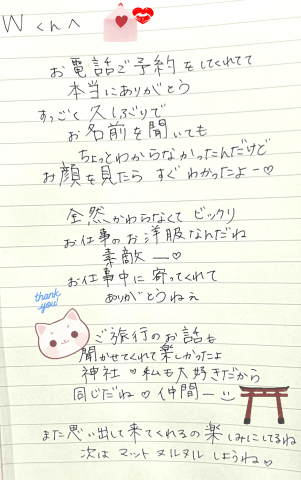 Wくんへ
お電話ご予約をしてくれてて
本当にありがとう
すっごく久しぶりで
お名前を聞いても
ちょっとわからなかったんだけど
お顔を見たら すぐわかったよー♡
全然かわらなくて ビックリ
お仕事のお洋服なんだね
素敵ー♡
お仕事中に寄ってくれて
ありがとうねぇ
thank you!
ご旅行のお話も
聞かせてくれて楽しかったよ
神社♡私も大好きだから
同じだね♡仲間ー
また思い出して来てくれるの楽しみにしてるね
次はマットヌルヌルしようね♡